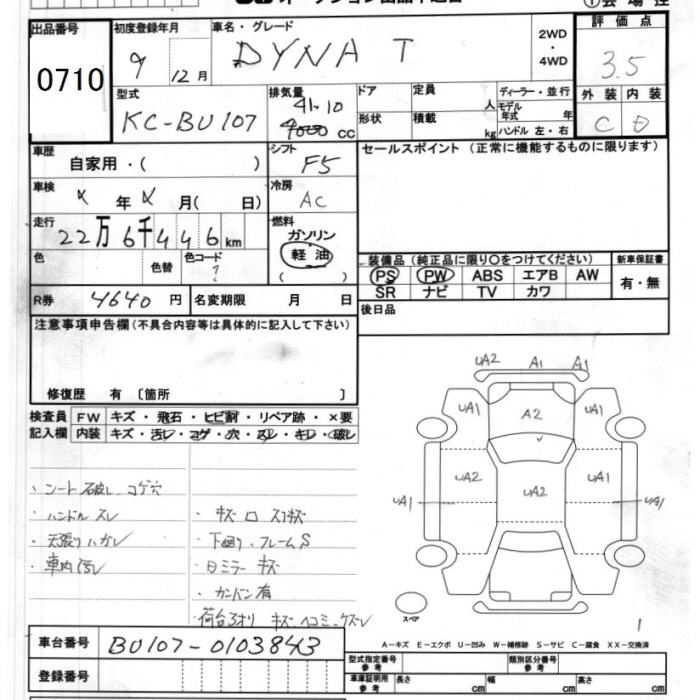 オークション出品申込書
①会場控
出品番号
0710
初度登録年月
9 12月
車名・グレード
DYNA T
2WD・4WD
評価点
3.5
型式
KC-BU107
排気量
41.10
4000 cc
ドア
定員
人
ディーラー・並行
形状
積載
kg
モデル年式
年
ハンドル 左・右
外装 内装
C D
車歴
自家用・( )
シフト
F5
セールスポイント (正常に機能するものに限ります)
車検
年 月( 日)
冷房
AC
走行
22万6千446km
燃料
ガソリン
軽油
色
色替
色コード
?
装備品 (純正品に限り○をつけてください)
新車保証書
PS PW ABS エアB AW
SR ナビ TV カワ
有・無
R券 4640 円
名変期限 月 日
後日品
注意事項申告欄 (不具合内容等は具体的に記入して下さい)
修復歴 有 〔箇所 〕
検査員 FW キズ・飛石・ヒビ割・リペア跡・×要
記入欄 内装 キズ・汚レ・コゲ・穴・スレ・キレ・破レ
UA2 A1 A1
UA1 A2 UA1
UA2 UA2 UA1
UA1 UA1
・シート破レ コゲ穴
・ハンドル スレ
・天張りハガレ
・車内汚レ
・キズ ロ スリキズ
・下廻り、フレームS
・日ミラー キズ
・カンバン有
・荷台3オリ キズ ヘコミ
スペア
1
A-キズ E-エクボ U-凹み W-補修跡 S-サビ C-腐食 XX-交換済
車台番号 BU107-0103843
登録番号
型式指定番号 参考
類別区分番号 参考
車庫証明用 参考
長さ cm 幅 cm 高さ cm